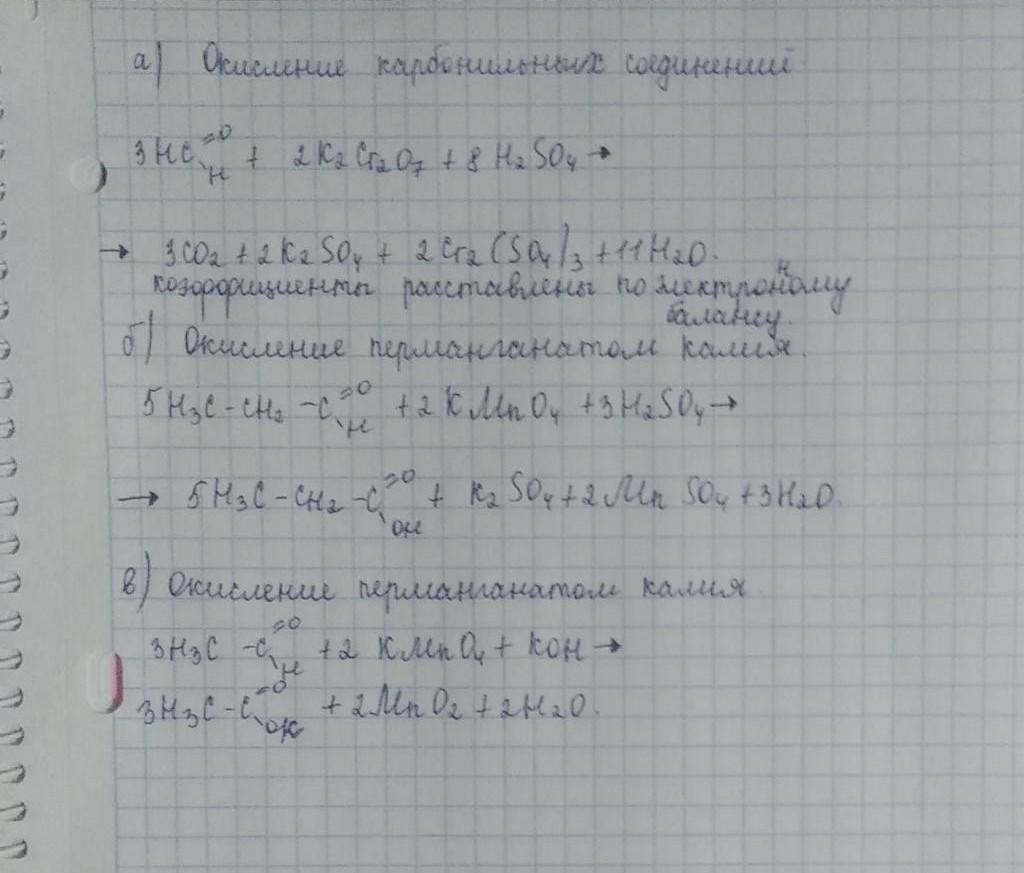 а) Окисление карбонильных соединений
3HC=O-H + 2K₂Cr₂O₇ + 8H₂SO₄ →
→ 3CO₂ + 2K₂SO₄ + 2Cr₂(SO₄)₃ + 11H₂O.
коэффициенты расставлены по электронному
балансу.
б) Окисление перманганатом калия.
5H₃C-CH₂-C=O-H + 2KMnO₄ + 3H₂SO₄ →
→ 5H₃C-CH₂-C=O-OH + K₂SO₄ + 2MnSO₄ + 3H₂O.
в) Окисление перманганатом калия
3H₃C-C=O-H + 2KMnO₄ + KOH →
3H₃C-C=O-OK + 2MnO₂ + 2H₂O.